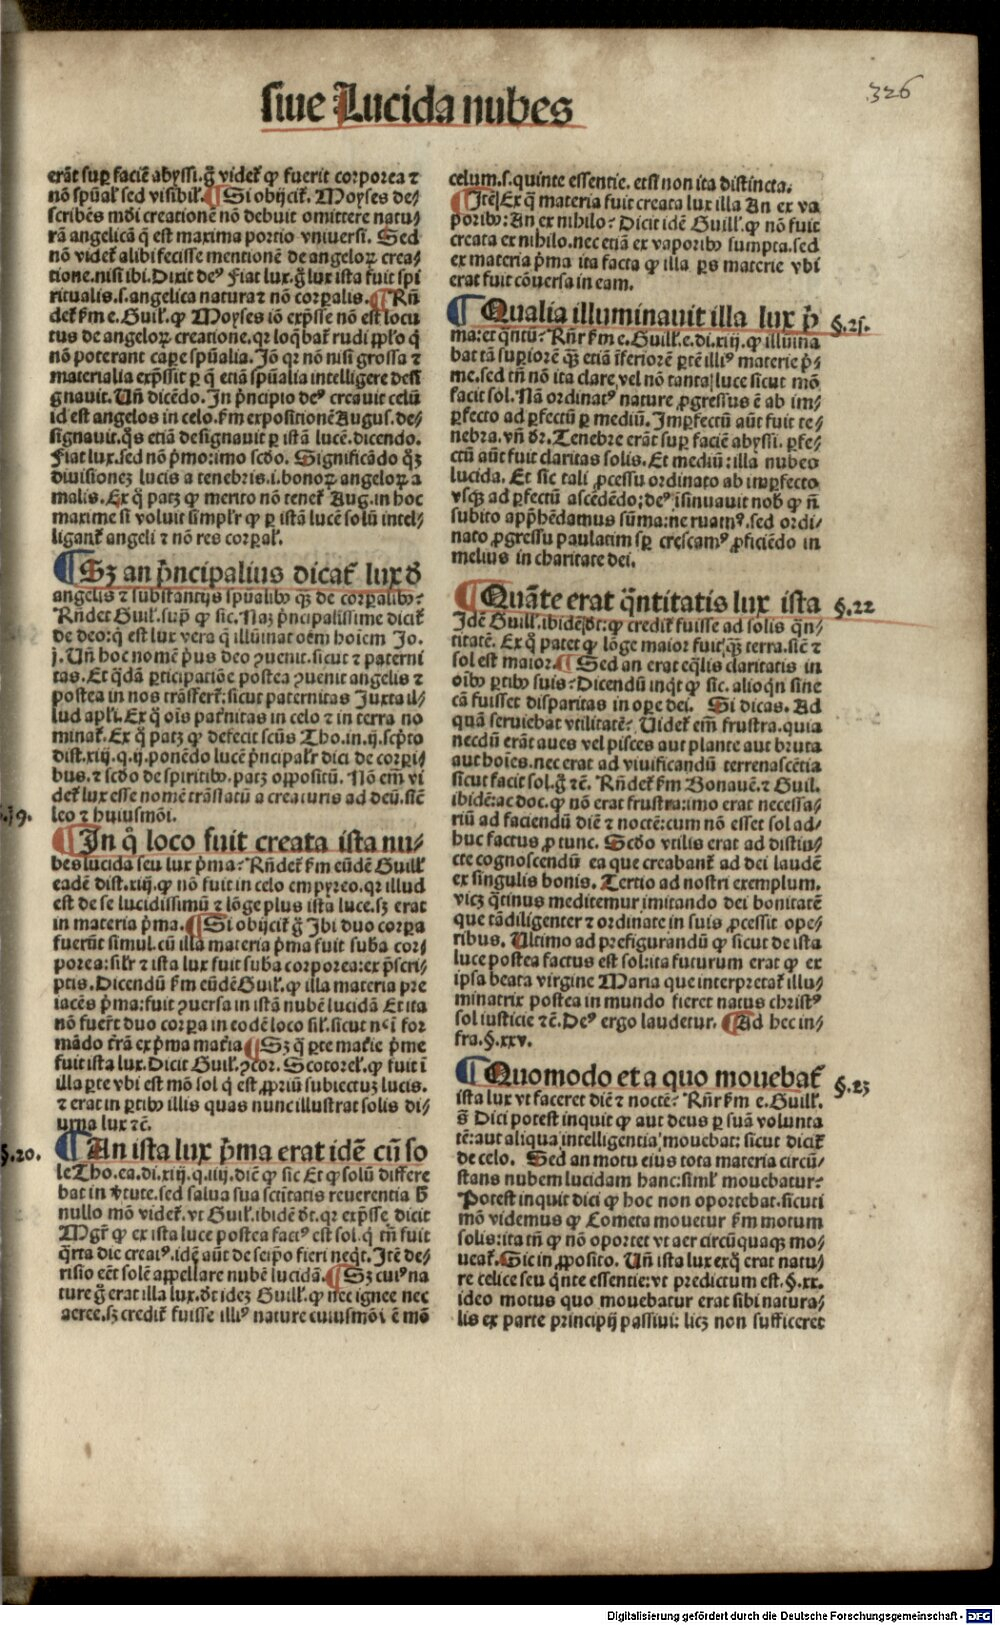 siue Lucida nubes
326
erãt suꝑ faciẽ abyssi.g̃ videt᷑ ꝙ fuerit corporea ⁊
nõ spũal᷑ sed visibil᷑. ¶ Si obijcit᷑. Moyses de⸗
scribẽs mũdi creationẽ nõ debuit omittere natu⸗
rã angelicã q̃ est maxima portio vniuersi. Sed
nõ videt᷑ alibi fecisse mentionẽ de angeloꝝ crea⸗
tione.nisi ibi. Dixit deꝰ Fiat lux. g̃ lux ista fuit spi
ritualis.s.angelica natura ⁊ nõ corꝑalis. ¶ Rñ
det᷑ ẜm e. Guil᷑. ꝙ Moyses iõ exp̃sse nõ est locu
tus de angeloꝝ creatione.qꝛ loq̃bat᷑ rudi pp̃lo q̃
nõ poterant cape spũalia. Jõ qꝛ nõ nisi grossa ⁊
materialia exp̃ssit ꝑ q̃ etiã spũalia intelligere desi
gnauit. Vñ dicẽdo. In p̃ncipio deꝰ creauit celũ
id est angelos in celo. ẜm expositionẽ Augus.de⸗
signauit.q̃s etiã designauit ꝑ istã lucẽ.dicendo.
Fiat lux.sed nõ p̃mo:imo scďo. Significãdo q̃ꝫ
diuisionez lucis a tenebris.i.honoꝝ angeloꝝ a
malis. Ex q̃ patꝫ ꝙ merito nõ tenet᷑ Aug. in hoc
maxime si voluit simpl᷑r ꝙ ꝑ istã lucẽ solũ intel⸗
ligant᷑ angeli ⁊ nõ res corꝑal᷑.
¶ Sꝫ an p̃ncipalius dicat᷑ lux ď
angelis ⁊ substantijs spũalibꝰ qꝫ de corꝑalibꝰ?
Rñdet Guil. sup̃ ꝙ sic. Naꝫ p̃ncipalissime dicit᷑
de deo:q̃ est lux vera q̃ illuĩnat oẽm hoĩem Jo.
j. Vñ hoc nomẽ p̃us deo ꝯuenit.sicut ⁊ paterni
tas. Et q̃dã ꝑticipatiõe postea ꝯuenit angelis ⁊
postea in nos trãsfert᷑:sicut paternitas Juxta il⸗
lud apl᷑i. Ex q̃ oĩs pat᷑nitas in celo ⁊ in terra no
minat᷑. Ex q̃ patꝫ ꝙ defecit scũs Tho.in.ij.scp̃to
dist.xiij.q.ij.ponẽdo lucẽ p̃ncipal᷑r dici de corꝑi⸗
bus.⁊ scďo de spiritibꝰ.patꝫ oppositũ. Nõ em̃ vi
det᷑ lux esse nomẽ trãslatũ a creaturis ad deũ.siẽ
leo ⁊ huiusmõi.
§.19.
¶ In q̃ loco fuit creata ista nu⸗
bes lucida seu lux p̃ma? Rñdet᷑ ẜm eũdẽ Guil᷑
eadẽ dist.xiij.ꝙ nõ fuit in celo empyreo.qꝛ illud
est de se lucidissimũ ⁊ lõge plus ista luce.sꝫ erat
in materia p̃ma. ¶ Si obijcit᷑ g̃ Ibi duo corꝑa
fuerũt simul.cũ illa materia p̃ma fuit suba cor⸗
porea:sil᷑r ⁊ ista lux fuit suba corporea:ex p̃scri⸗
ptis. Dicendũ ẜm eũdẽ Guil᷑. ꝙ illa materia pre
iacẽs p̃ma:fuit ꝯuersa in istã nubẽ lucidã Et ita
nõ fuer̃t duo corꝑa in eodẽ loco sil᷑.sicut nec̃ i for
mãdo tr̃ã ex p̃ma mat᷑ia ¶ Sꝫ q̃ ꝑte mat᷑ie p̃me
fuit ista lux. Dicit Guil᷑. ꝯcor. Scotorel᷑. ꝙ fuit i
illa ꝑte vbi est mõ sol q̃ est ꝓpriũ subiectuꝫ lucis.
⁊ erat in ꝑtibꝰ illis quas nunc illustrat solis di⸗
urna lux ⁊c̃.
§.20.
¶ An ista lux p̃ma erat idẽ cũ so
le Tho.ea.di.xiij.q.iiij.diẽ ꝙ sic Et ꝙ solũ differe
bat in v̾tute.sed salua sua sc̃titatis reuerentia h̾
nullo mõ videt᷑.vt Guil᷑.ibidẽ ďt.qꝛ exp̃sse dicit
Mgr̃ ꝙ ex ista luce postea factꝰ est sol.q̃ tñ fuit
q̃rta die creatꝰ.idẽ aũt de seip̃o fieri neq̃t. Itẽ de⸗
risio eẽt solẽ appellare nubẽ lucidã. ¶ Sꝫ cuiꝰ na
ture g̃ erat illa lux.ďt idez Guill᷑.ꝙ nec ignee nec
aeree.sꝫ credit᷑ fuisse illiꝰ nature cuiusmõi ẽ mõ
celum.s.quinte essentie.etsi non ita distincta.
¶ Itẽ Ex q̃ materia fuit creata lux illa An ex va
poribꝰ:An ex nihilo? Dicit idẽ Guill᷑. ꝙ nõ fuit
creata ex nihilo.nec etiã ex vaporibꝰ sumpta.sed
ex materia p̃ma ita facta ꝙ illa ꝑs materie vbi
erat fuit cõuersa in eam.
¶ Qualia illuminauit illa lux p̃
§.21.
ma:et q̃ntũ? Rñr ẜm e. Guill.e.di.xiij.ꝙ illuĩna
bat tã suꝑiorẽ qꝫ etiã iferiorẽ ꝑtẽ illiꝰ materie p̃⸗
me.sed tñ nõ ita clare,vel nõ tanta luce sicut mõ
facit sol. Nã ordinatꝰ nature ꝓgressus ẽ ab im⸗
ꝑfecto ad ꝑfectũ ꝑ mediũ. Imꝑfectũ aũt fuit te⸗
nebra.vñ ďr. Tenebre erãt suꝑ faciẽ abyssi. ꝑfe⸗
ctũ aũt fuit claritas solis. Et mediũ:illa nubes
lucida. Et sic tali ꝓcessu ordinato ab imꝑfecto
vsqꝫ ad ꝑfectũ ascẽdẽdo;deꝰ isinuauit nob̃ ꝙ ñ
subito app̃hẽdamus sũma:ne ruamꝰ.sed ordi⸗
nato ꝓgressu paulatim sꝑ crescamꝰ ꝓficiẽdo in
melius in charitate dei.
¶ Quãte erat q̃ntitatis lux ista
§.22
Idẽ Guill᷑.ibidẽ ďt:ꝙ credit᷑ fuisse ad solis q̃n⸗
titatẽ. Ex q̃ patet ꝙ lõge maior fuit qꝫ terra.siẽ ⁊
sol est maior. ¶ Sed an erat eq̃lis claritatis in
oĩbꝰ ꝑtibꝰ suis? Dicendũ inq̃t ꝙ sic.alioq̃n sine
cã fuisset disparitas in oꝑe dei. Si dicas. Ad
quã seruiebat vtilitatẽ? Videt᷑ em̃ frustra.quia
necdũ erãt aues vel pisces aut plante aut bruta
aut hoĩes.nec erat ad viuificandũ terrenascẽtia
sicut facit sol.g̃ ⁊c̃. Rñdet᷑ ẜm Bonauẽ.⁊ Guil.
ibidẽ:ac doc.ꝙ nõ erat frustra:imo erat necessa⸗
riũ ad faciendũ diẽ ⁊ noctẽ:cum nõ esset sol ad⸗
huc factus ꝓ tunc. Scďo vtilis erat ad distin⸗
cte cognoscendũ ea que creabant᷑ ad dei laudẽ
ex singulis bonis. Tertio ad nostri exemplum.
vicꝫ q̃tinus meditemur imitando dei bonitatẽ
que tã diligenter ⁊ ordinate in suis ꝓcessit ope⸗
ribus. Ultimo ad prefigurandũ ꝙ sicut de ista
luce postea factus est sol:ita futurum erat ꝙ ex
ipsa beata virgine Maria que interpretat᷑ illu⸗
minatrix postea in mundo fieret natus christꝰ
sol iusticie ⁊c̃. Deꝰ ergo laudetur. ¶ Ad hec in⸗
fra.§.xxv.
¶ Quomodo et a quo mouebat᷑
§.23
ista lux vt faceret diẽ ⁊ noctẽ? Rñr ẜm e. Guill᷑.
s̃ Dici potest inquit ꝙ aut deus ꝑ suã volunta
tẽ:aut aliqua intelligentia mouebat: sicut dicit᷑
de celo. Sed an motu eius tota materia circũ⸗
stans nubem lucidam hanc:simil᷑ mouebatur?
Potest inquit dici ꝙ hoc non oportebat.sicuti
mõ videmus ꝙ Cometa mouetur ẜm motum
solis:ita tñ ꝙ nõ oportet vt aer circũquaqꝫ mo⸗
ueat᷑. Sic in ꝓposito. Vñ ista lux ex q̃ erat natu⸗
re celice seu q̃nte essentie:vt predictum est.§.xx.
ideo motus quo mouebatur erat sibi natura⸗
lis ex parte principij passiui: licꝫ non sufficeret
Digitalisierung gefördert durch die Deutsche Forschungsgemeinschaft - DFG